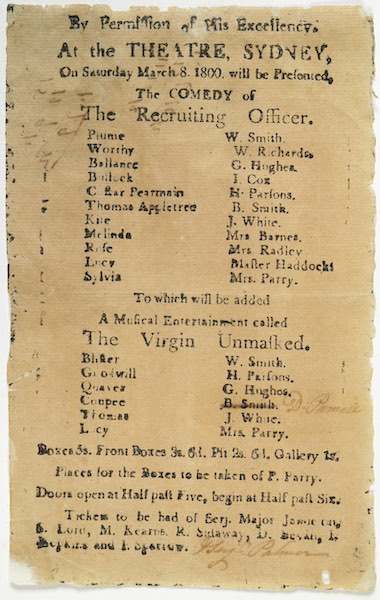 By Permission of His Excellency.
At the THEATRE, SYDNEY,
On Saturday March 8. 1800. will be Presented,
The COMEDY of
The Recruiting Officer.
Plume W. Smith.
Worthy W. Richards,
Ballance G. Hughes.
Bullock I. Cox
C ftar Pearmain H. Parsons.
Thomas Appletree B. Smith.
Kite J. White.
Melinda Mrs Barnes.
Rose Mrs. Radley
Lucy Master Haddocks
Sylvia Mrs. Parry.
To which will be added
A Musical Entertainment called
The Virgin Unmasked.
Blister W. Smith.
Goodwill H. Parsons.
Quaver G. Hughes.
Coupee B. Smith.
Thomas J. White.
Lucy Mrs. Parry.
Boxes 5s. Front Boxes 3s. 6d. Pit 2s. 6d. Gallery 1s.
Places for the Boxes to be taken of P. Parry.
Doors open at Half past Five, begin at Half past Six.
Tickets to be had of Serj. Major Jamieson,
S. Lord, M. Kearns, R. Sidaway, D. Bevan, I.
and I. Sparrow. Palmer